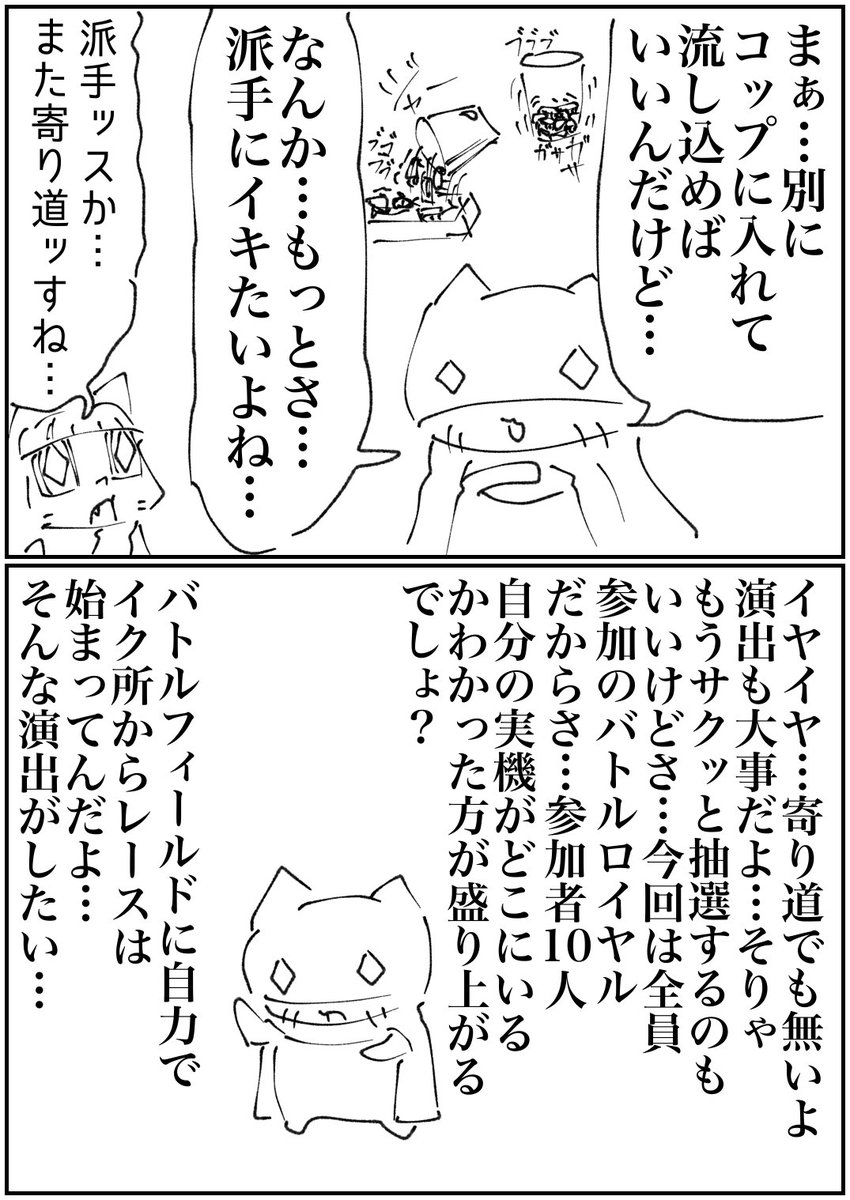 まぁ…別に
コップに入れて
流し込めば
いいんだけど…
ブブブブ
ガサササ
ブブブゴゴ
なんか…もっとさ…
派手にイキたいよね…
派手ッスか…
また寄り道ッすね…
イヤイヤ…寄り道でも無いよ
演出も大事だよ…そりゃ
もうサクッと抽選するのも
いいけどさ…今回は全員
参加のバトルロイヤル
だからさ…参加者10人
自分の実機がどこにいる
かわかった方が盛り上がる
でしょ？
バトルフィールドに自力で
イク所からレースは
始まってんだよ…
そんな演出がしたい…